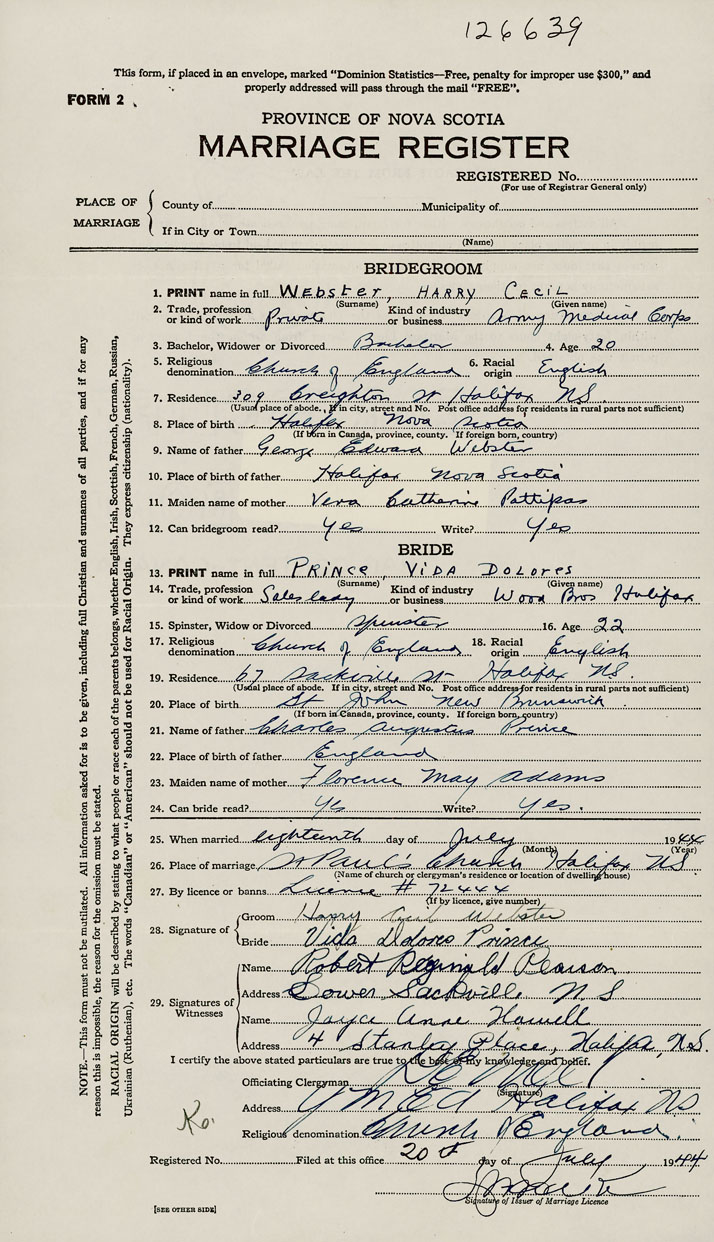 126639
This form, if placed in an envelope, marked "Dominion Statistics—Free, penalty for improper use $300," and
properly addressed will pass through the mail "FREE".
FORM 2
PROVINCE OF NOVA SCOTIA
MARRIAGE REGISTER
REGISTERED No.
(For use of Registrar General only)
PLACE OF MARRIAGE
County of Municipality of
If in City or Town
(Name)
BRIDEGROOM
1. PRINT name in full WEBSTER, HARRY CECIL
(Surname) (Given name)
2. Trade, profession or kind of work Private Kind of industry or business Army Medical Corps
3. Bachelor, Widower or Divorced Bachelor 4. Age 20
5. Religious denomination Church of England 6. Racial origin English
7. Residence 309 Creighton St Halifax NS.
(Usual place of abode. If in city, street and No. Post office address for residents in rural parts not sufficient)
8. Place of birth Halifax Nova Scotia
(If born in Canada, province, county. If foreign born, country)
9. Name of father George Edward Webster
10. Place of birth of father Halifax Nova Scotia
11. Maiden name of mother Vera Catherine
12. Can bridegroom read? Yes Write? Yes
BRIDE
13. PRINT name in full PRINCE, VIDA DOLORES
(Surname) (Given name)
14. Trade, profession or kind of work Saleslady Kind of industry or business Wood Bros Halifax
15. Spinster, Widow or Divorced Spinster 16. Age 22
17. Religious denomination Church of England 18. Racial origin English
19. Residence 67 Sackville St Halifax NS.
(Usual place of abode. If in city, street and No. Post office address for residents in rural parts not sufficient)
20. Place of birth St John New Brunswick.
(If born in Canada, province, county. If foreign born, country)
21. Name of father Charles Augustus Prince
22. Place of birth of father England
23. Maiden name of mother Florence May Adams
24. Can bride read? Yes Write? Yes.
25. When married eighteenth day of July 1944
(Month) (Year)
26. Place of marriage St Paul's Church Halifax NS
(Name of church or clergyman's residence or location of dwelling house)
27. By licence or banns Licence # 72444
(If by licence, give number)
28. Signature of Groom Harry Cecil Webster
Bride Vida Dolores Prince
29. Signatures of Witnesses
Name Robert Reginald Pearson
Address Lower Sackville N S
Name Joyce Anne Howell
Address 4 Stanley Place, Halifax, N.S.
I certify the above stated particulars are true to the best of my knowledge and belief.
Officiating Clergyman
(Signature)
Address Halifax NS
Religious denomination Church of England.
Registered No. Filed at this office 20th day of July 1944
Signature of Issuer of Marriage Licence
[SEE OTHER SIDE]
NOTE.—This form must not be mutilated. All information asked for is to be given, including full Christian and surnames of all parties, and if for any
reason this is impossible, the reason for the omission must be stated.
RACIAL ORIGIN will be described by stating to what people or race each of the parents belongs, whether English, Irish, Scottish, French, German, Russian,
Ukrainian (Ruthenian), etc. The words "Canadian" or "American" should not be used for Racial Origin. They express citizenship (nationality).